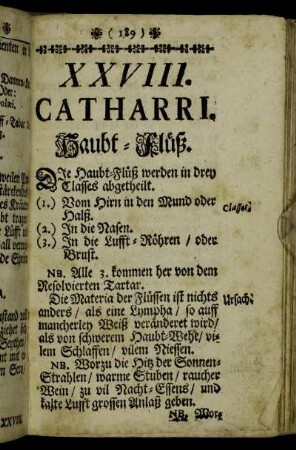 ❋ ( 189 ) ❋
XXVIII.
CATHARRI.
Haubt-Flüß.
Die Haubt-Flüß werden in drey
Classes abgetheilt.
(1.) Vom Hirn in den Mund oder
Halß.
Classes
(2.) In die Nasen.
(3.) In die Lufft-Röhren / oder
Brust.
NB. Alle 3. kommen her von dem
Resolvierten Tartar.
Die Materia der Flüssen ist nichts
Ursach.
anders / als eine Lympha / so auff
mancherley Weiß veränderet wird /
als von schwerem Haubt-Wehe / vi-
lem Schlaffen / vilem Niessen.
NB. Worzu die Hitz der Sonnen-
Strahlen / warme Stuben / raucher
Wein / zu vil Nacht-Essens / und
kalte Lufft grossen Anlaß geben.
NB. Wor-
XXVIII.